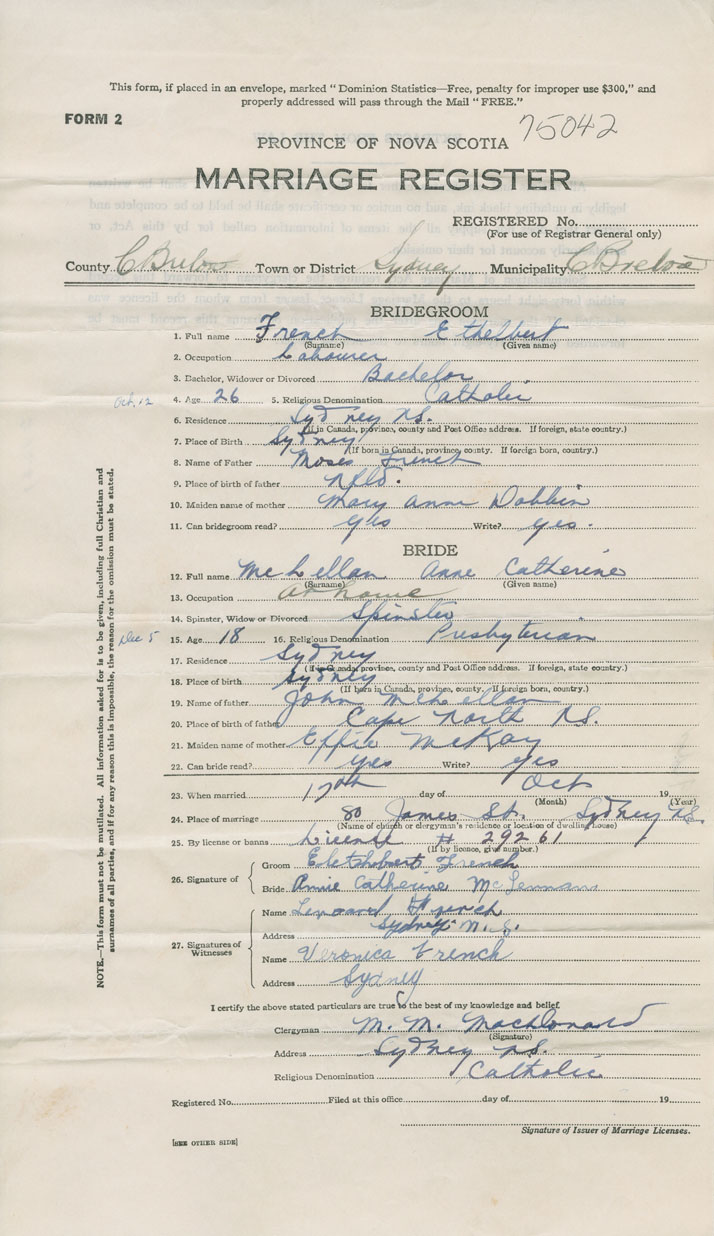 This form, if placed in an envelope, marked "Dominion Statistics—Free, penalty for improper use $300," and
properly addressed will pass through the Mail "FREE."
FORM 2
75042
PROVINCE OF NOVA SCOTIA
MARRIAGE REGISTER
REGISTERED No.
(For use of Registrar General only)
County C Breton Town or District Sydney Municipality C Breton
BRIDEGROOM
1. Full name French Ethelbert
(Surname) (Given name)
2. Occupation Labourer
3. Bachelor, Widower or Divorced Bachelor
Oct. 12
4. Age 26 5. Religious Denomination Catholic
6. Residence Sydney NS.
(If in Canada, province, county and Post Office address. If foreign, state country.)
7. Place of Birth Sydney
(If born in Canada, province, county. If foreign born, country.)
8. Name of Father Moses French
9. Place of birth of father Nfld.
10. Maiden name of mother Mary Anne Dobbin
11. Can bridegroom read? yes Write? yes.
BRIDE
12. Full name McLellan Anne Catherine
(Surname) (Given name)
13. Occupation At home
14. Spinster, Widow or Divorced Spinster
Dec 5
15. Age 18 16. Religious Denomination Presbyterian
17. Residence Sydney
(If in Canada, province, county and Post Office address. If foreign, state country.)
18. Place of birth Sydney
(If born in Canada, province, county. If foreign born, country.)
19. Name of father John McLellan
20. Place of birth of father Cape North NS.
21. Maiden name of mother Effie McKay
22. Can bride read? yes Write? yes
23. When married 17th day of Oct 19
(Month) (Year)
24. Place of marriage 80 James St. Sydney NS.
(Name of church or clergyman's residence or location of dwelling house)
25. By license or banns License # 29261
(If by licence, give number.)
26. Signature of
Groom French
Bride Annie Catherine McLennan
27. Signatures of
Witnesses
Name French
Address Sydney N.S.
Name Veronica French
Address Sydney
I certify the above stated particulars are true to the best of my knowledge and belief.
Clergyman M. M. MacDonald
(Signature)
Address Sydney NS.
Religious Denomination Catholic
Registered No. Filed at this office day of 19
Signature of Issuer of Marriage Licenses.
[SEE OTHER SIDE]
NOTE.—This form must not be mutilated. All information asked for is to be given, including full Christian and
surnames of all parties, and if for any reason this is impossible, the reason for the omission must be stated.